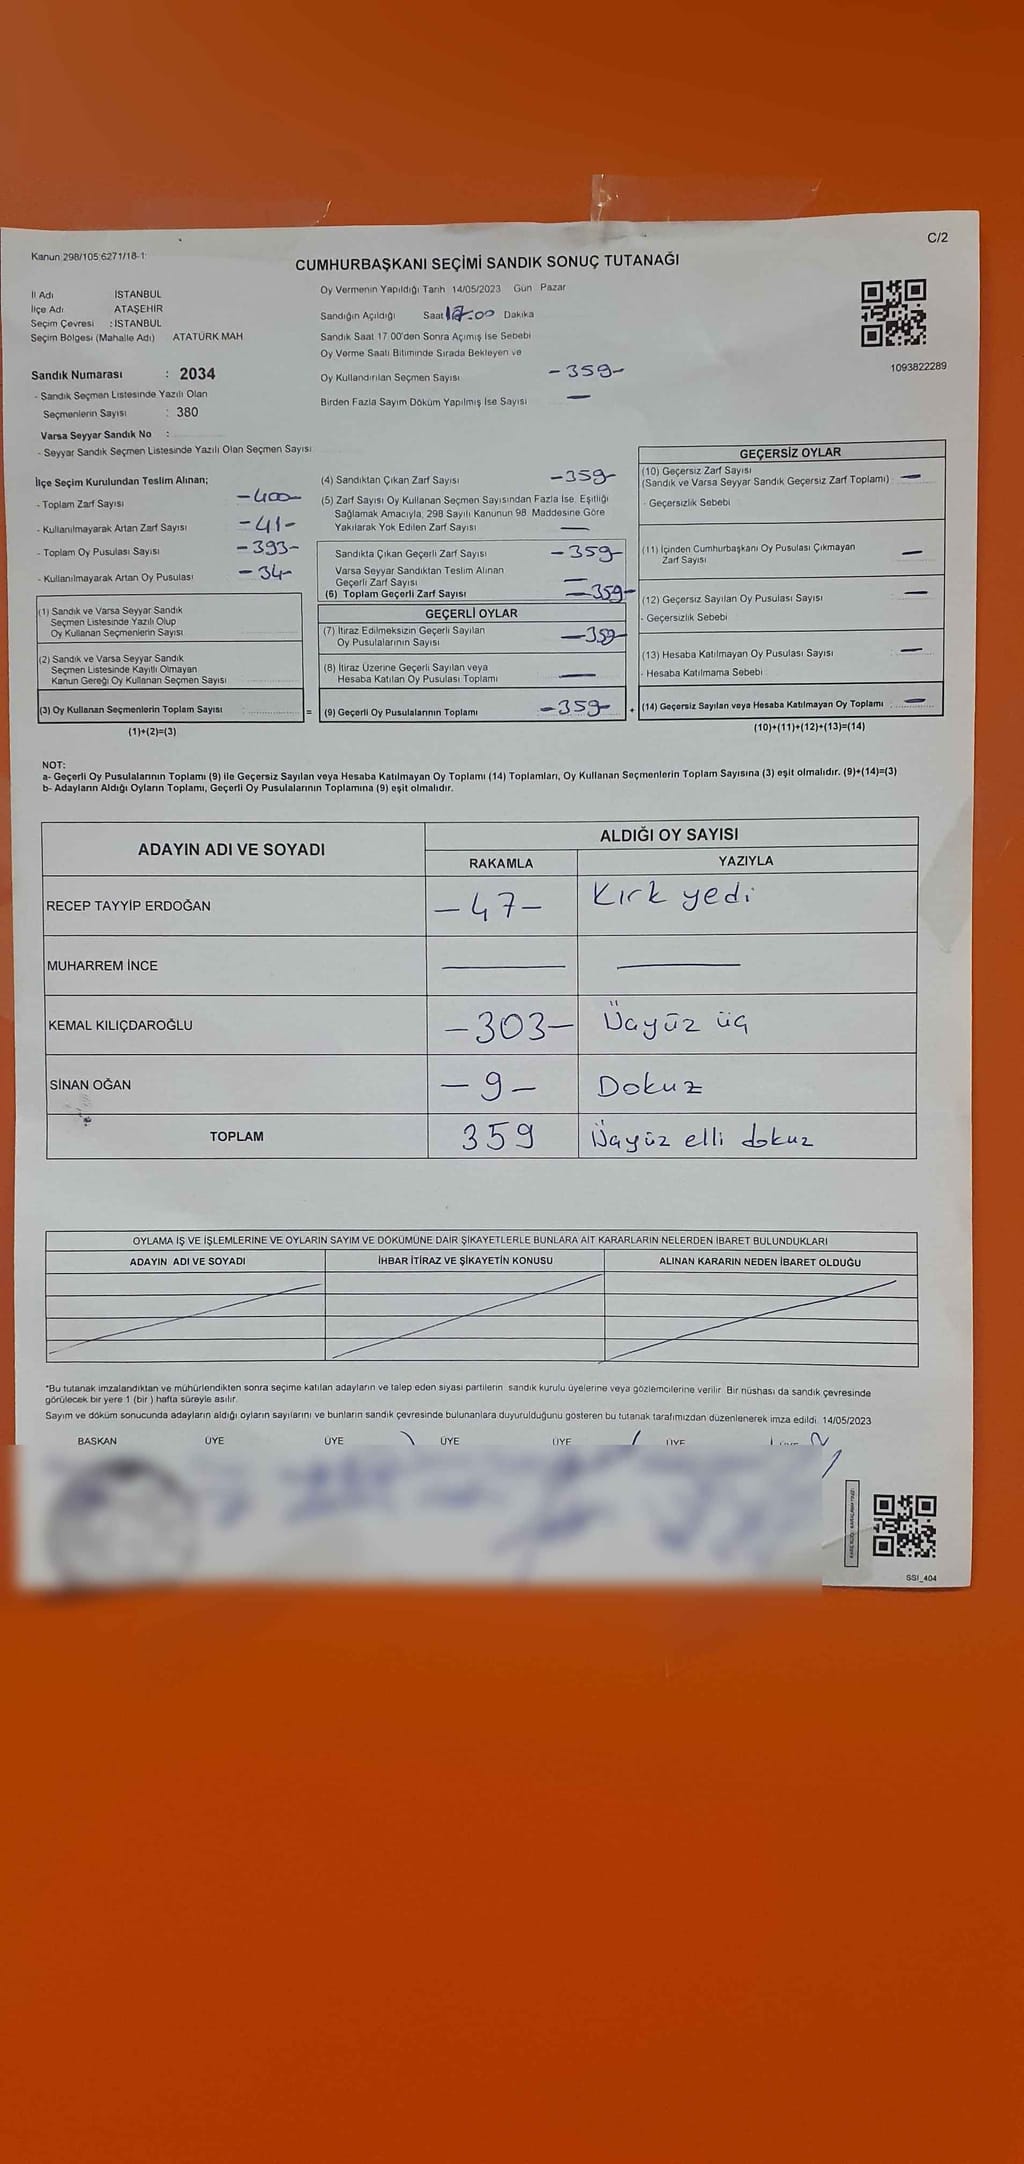 C/2
Kanun 298/105 6271/18-1
CUMHURBAŞKANI SEÇİMİ SANDIK SONUÇ TUTANAĞI
İl Adı İSTANBUL
İlçe Adı ATAŞEHİR
Seçim Çevresi : İSTANBUL
Seçim Bölgesi (Mahalle Adı) ATATÜRK MAH
Sandık Numarası : 2034
- Sandık Seçmen Listesinde Yazılı Olan
Seçmenlerin Sayısı : 380
Varsa Seyyar Sandık No :
- Seyyar Sandık Seçmen Listesinde Yazılı Olan Seçmen Sayısı
Oy Vermenin Yapıldığı Tarih 14/05/2023 Gün Pazar
Sandığın Açıldığı Saat 17.00 Dakika
Sandık Saat 17 00'den Sonra Açımış İse Sebebi
Oy Verme Saati Bitiminde Sırada Bekleyen ve
Oy Kullandırılan Seçmen Sayısı -359-
Birden Fazla Sayım Döküm Yapılmış İse Sayısı —
1093822289
İlçe Seçim Kurulundan Teslim Alınan;
- Toplam Zarf Sayısı -400-
- Kullanılmayarak Artan Zarf Sayısı -41-
- Toplam Oy Pusulası Sayısı -393-
- Kullanılmayarak Artan Oy Pusulası -34-
(1) Sandık ve Varsa Seyyar Sandık
Seçmen Listesinde Yazılı Olup
Oy Kullanan Seçmenlerin Sayısı
(2) Sandık ve Varsa Seyyar Sandık
Seçmen Listesinde Kayıtlı Olmayan
Kanun Gereği Oy Kullanan Seçmen Sayısı
(3) Oy Kullanan Seçmenlerin Toplam Sayısı : =
(1)+(2)=(3)
(4) Sandıktan Çıkan Zarf Sayısı -359-
(5) Zarf Sayısı Oy Kullanan Seçmen Sayısından Fazla İse, Eşitliği
Sağlamak Amacıyla, 298 Sayılı Kanunun 98. Maddesine Göre
Yakılarak Yok Edilen Zarf Sayısı —
Sandıkta Çıkan Geçerli Zarf Sayısı -359-
Varsa Seyyar Sandıktan Teslim Alınan
Geçerli Zarf Sayısı —
(6) Toplam Geçerli Zarf Sayısı -359-
GEÇERLİ OYLAR
(7) İtiraz Edilmeksizin Geçerli Sayılan
Oy Pusulalarının Sayısı -359-
(8) İtiraz Üzerine Geçerli Sayılan veya
Hesaba Katılan Oy Pusulası Toplamı —
(9) Geçerli Oy Pusulalarının Toplamı -359- +
GEÇERSİZ OYLAR
(10) Geçersiz Zarf Sayısı
(Sandık ve Varsa Seyyar Sandık Geçersiz Zarf Toplamı) —
- Geçersizlik Sebebi
(11) İçinden Cumhurbaşkanı Oy Pusulası Çıkmayan
Zarf Sayısı —
(12) Geçersiz Sayılan Oy Pusulası Sayısı —
- Geçersizlik Sebebi
(13) Hesaba Katılmayan Oy Pusulası Sayısı —
- Hesaba Katılmama Sebebi
(14) Geçersiz Sayılan veya Hesaba Katılmayan Oy Toplamı —
(10)+(11)+(12)+(13)=(14)
NOT:
a- Geçerli Oy Pusulalarının Toplamı (9) ile Geçersiz Sayılan veya Hesaba Katılmayan Oy Toplamı (14) Toplamları, Oy Kullanan Seçmenlerin Toplam Sayısına (3) eşit olmalıdır. (9)+(14)=(3)
b- Adayların Aldığı Oyların Toplamı, Geçerli Oy Pusulalarının Toplamına (9) eşit olmalıdır.
ADAYIN ADI VE SOYADI ALDIĞI OY SAYISI
RAKAMLA YAZIYLA
RECEP TAYYİP ERDOĞAN -47- Kırk yedi
MUHARREM İNCE — —
KEMAL KILIÇDAROĞLU -303- Üçyüz üç
SİNAN OĞAN -9- Dokuz
TOPLAM 359 Üçyüz elli dokuz
OYLAMA İŞ VE İŞLEMLERİNE VE OYLARIN SAYIM VE DÖKÜMÜNE DAİR ŞİKAYETLERLE BUNLARA AİT KARARLARIN NELERDEN İBARET BULUNDUKLARI
ADAYIN ADI VE SOYADI İHBAR İTİRAZ VE ŞİKAYETİN KONUSU ALINAN KARARIN NEDEN İBARET OLDUĞU
*Bu tutanak imzalandıktan ve mühürlendikten sonra seçime katılan adayların ve talep eden siyasi partilerin sandık kurulu üyelerine veya gözlemcilerine verilir. Bir nüshası da sandık çevresinde
görülecek bir yere 1 (bir ) hafta süreyle asılır.
Sayım ve döküm sonucunda adayların aldığı oyların sayılarını ve bunların sandık çevresinde bulunanlara duyurulduğunu gösteren bu tutanak tarafımızdan düzenlenerek imza edildi. 14/05/2023
BAŞKAN ÜYE ÜYE ÜYE ÜYE ÜYE
SSI_404